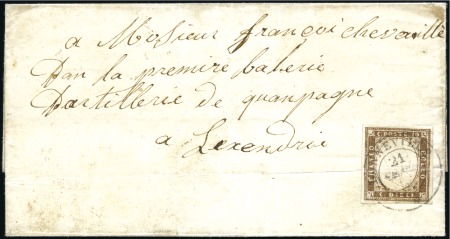 a Mosieur françoi chevaille
Dan la premire baterie
Dartillerie de quanpagne
a Lexendrie
C. POSTE 10
C. DIECI
21